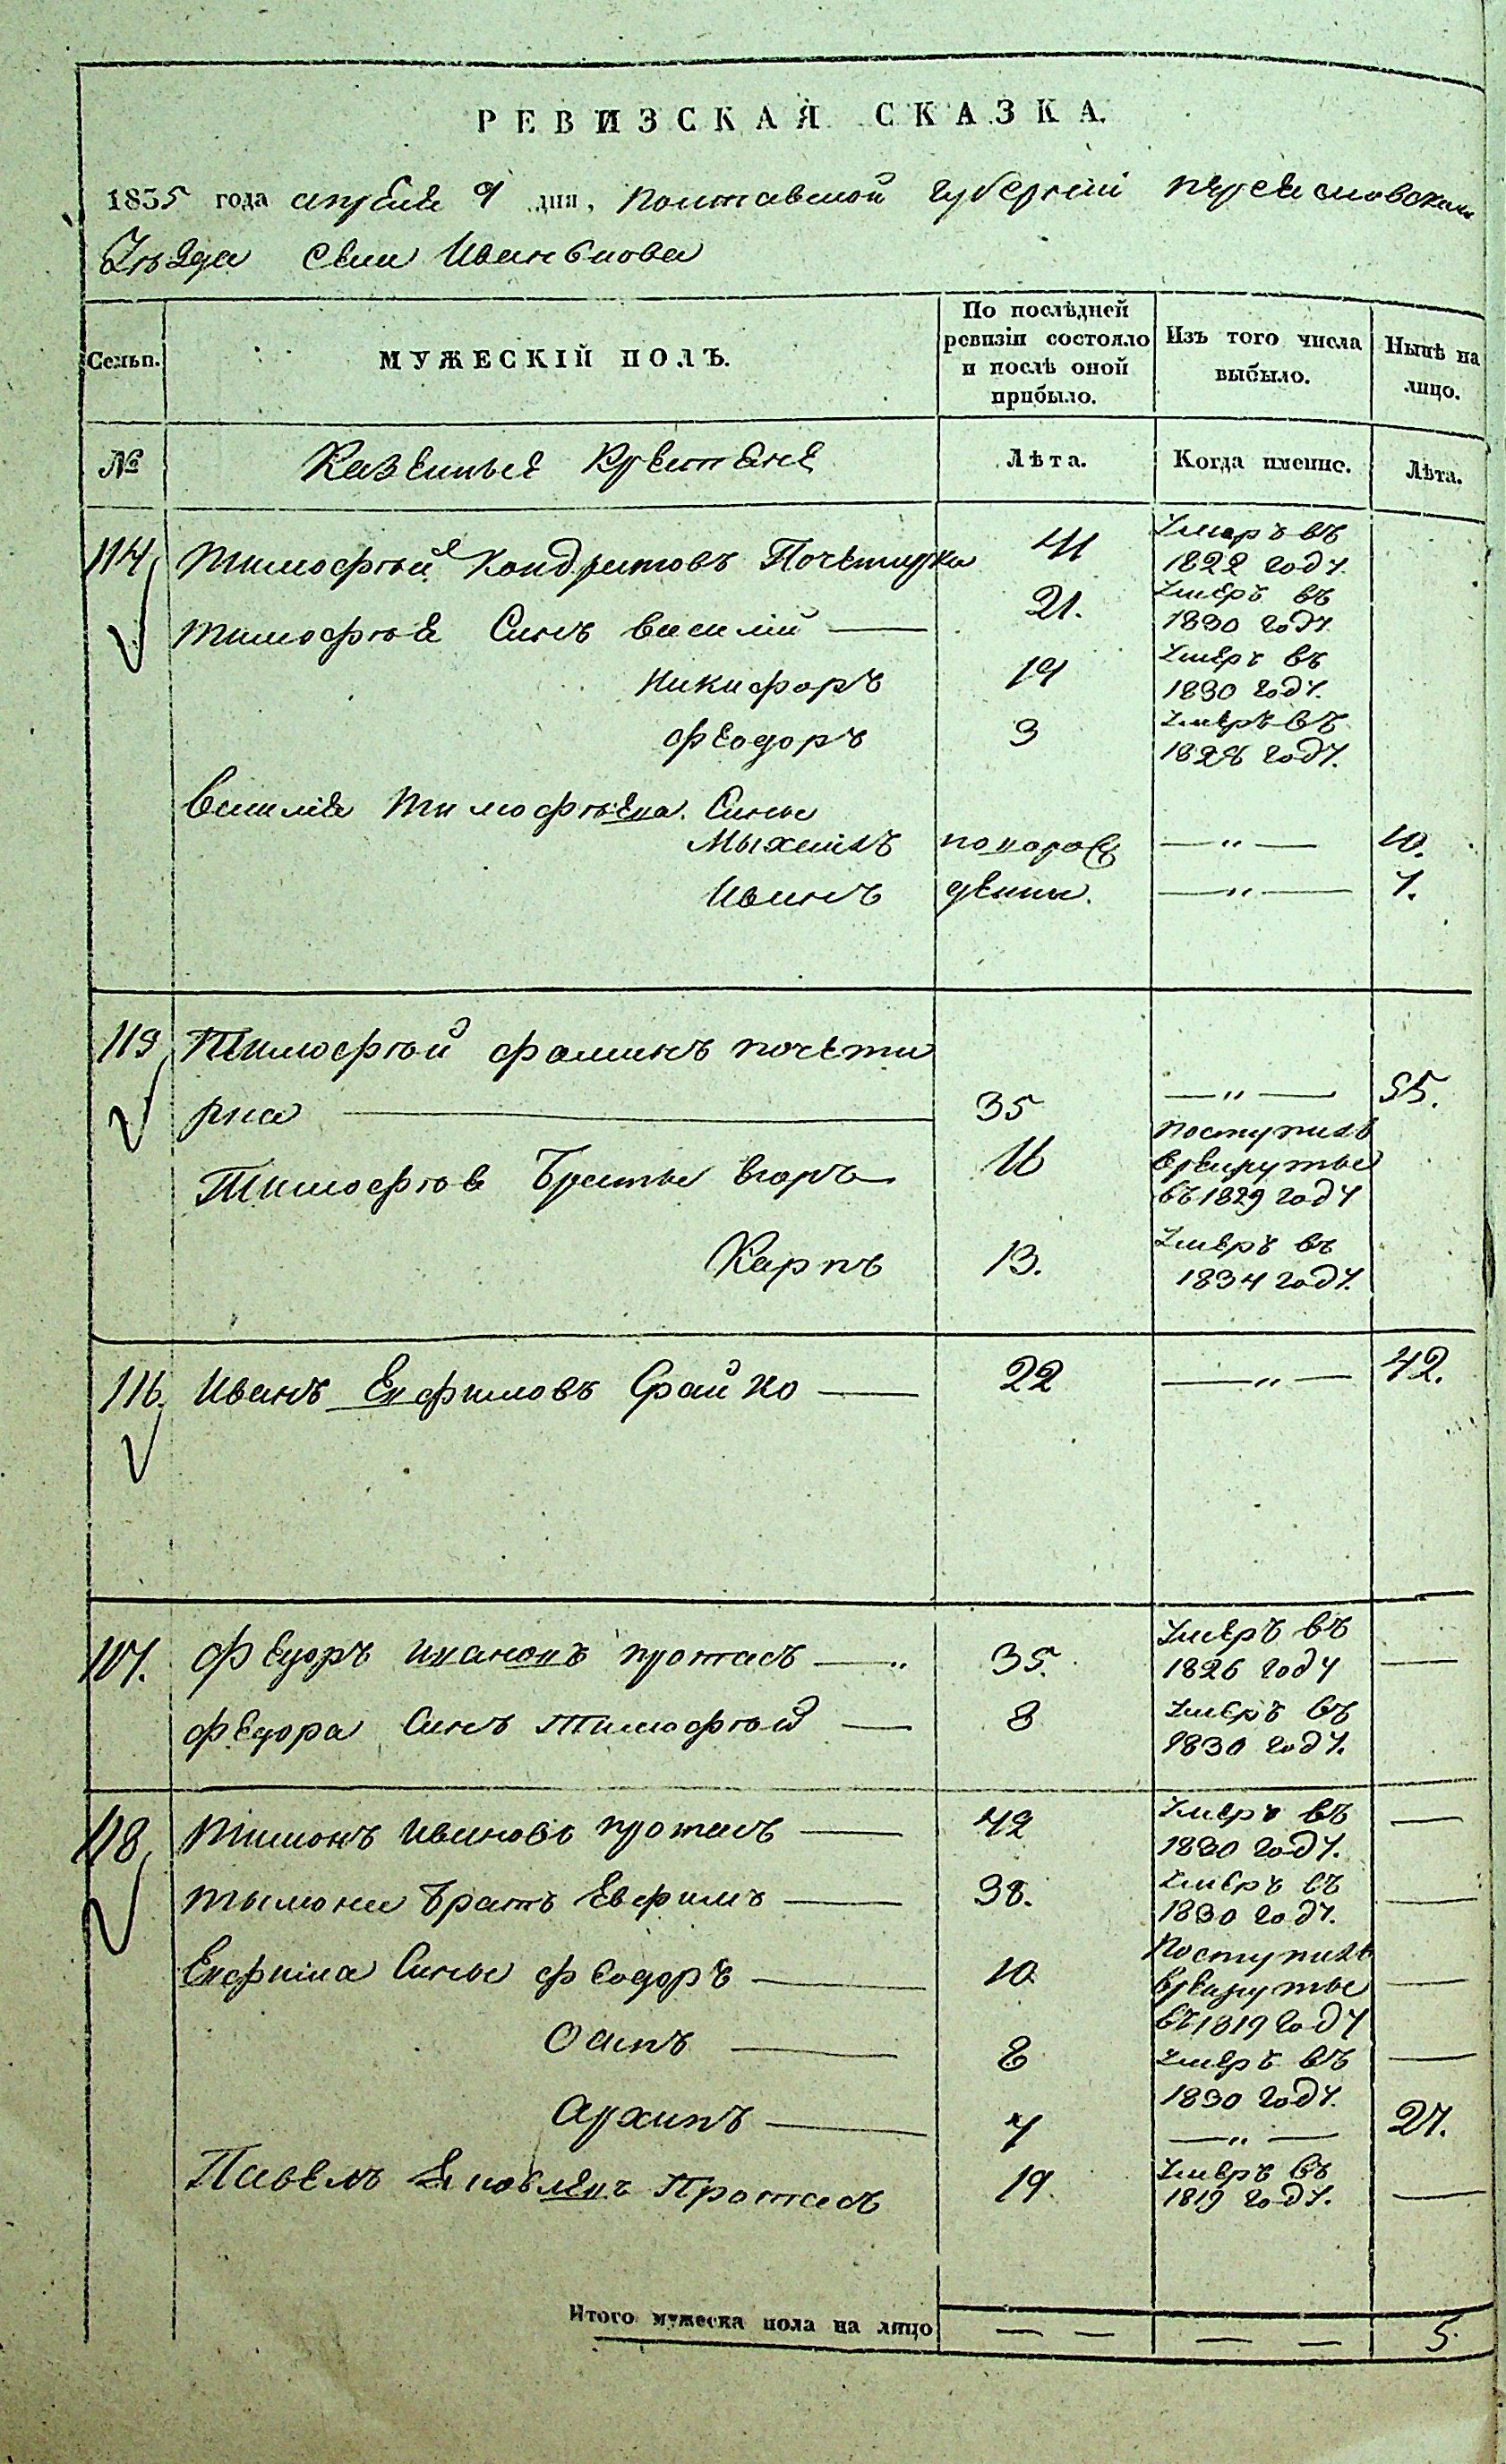 РЕВИЗСКАЯ СКАЗКА.
1835 года апреля 9 дня, Полтавской губернии Переясловскаго
Уезда Села Иванькова
Семьи.
МУЖЕСКІЙ ПОЛЪ.
По послѣдней ревизіи состояло и послѣ оной прибыло.
Изъ того числа выбыло.
Нынѣ на лицо.
№
Казенные Крестяне
Лѣта.
Когда именно.
Лѣта.
114 Тимофѣй Кондратовъ Почетирка 41 Умеръ въ 1822 году.
Тимофѣя Синъ Василій — 21. Умеръ въ 1830 году.
Никифоръ 19 Умеръ въ 1830 году.
Феодоръ 3 Умеръ въ 1828 году.
Василія Тимофѣева Сины
Мыхаилъ новорож — „ — 10.
Иванъ дены. — „ — 7.
115 Тимофѣй Фоминъ почети
рка — 35 — „ — 55.
Тимофѣя Братья Егоръ 16 поступилъ врекруты въ 1829 году
Карпъ 13. Умеръ въ 1834 году.
116. Иванъ Евфимовъ Срайко — 22 — „ — 42.
117. Федоръ Ивановъ протасъ — „ 35. Умеръ въ 1826 году —
Федора Синъ Тимофѣй — 8 Умеръ въ 1830 году.
118 Тимонъ Ивановъ протасъ — 42 Умеръ въ 1830 году. —
Тымона Братъ Евфимъ — 38. Умеръ въ 1830 году. —
Евфима Сины Феодоръ — 10 Поступилъ врекруты въ 1819 году —
Осипъ — 8 Умеръ въ 1830 году. —
Архипъ — 7 — „ — 27.
Павелъ Яковлевъ Протасъ 19. Умеръ въ 1819 году. —
Итого мужеска пола на лицо — — — — 5.